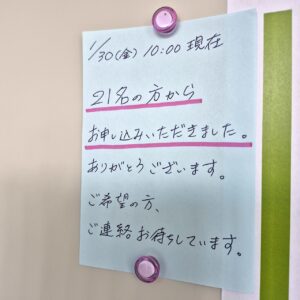 1/30(金) 10:00 現在
21名の方から
お申し込みいただきました。
ありがとうございます。
ご希望の方、
ご連絡お待ちしています。